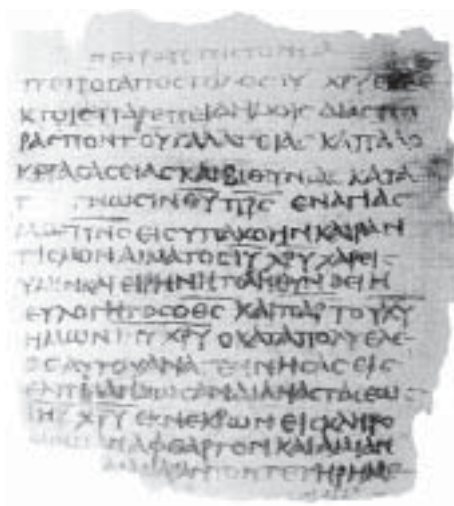 ΠΕΤΡΟϹΑΠΟϹΤΟΛΟϹΙΥ ΧΡΥ
ΚΤΟΙϹΠΑΡΕΠΙΔΗΜΟΙϹ ΔΙΑϹΠΟ
ΡΑϹΠΟΝΤΟΥΓΑΛΑΤΕΙΑϹ ΚΑΠΠΑΔΟ
ΑϹΕΙΑϹ ΚΑΙΒΙΘΥΝΙΑϹ ΚΑΤΑ
ΓΝΩϹΙΝΘΥ ΠΡϹ ΕΝΑΓΙΑϹ
ΜΩΠΝϹ ΕΙϹΥΠΑΚΟΗΝΚΑΙΡΑΝ
ΤΙϹΜΟΝΑΙΜΑΤΟϹΙΥ ΧΡΥ ΧΑΡΕΙϹ
ΥΜΙΝΚΑΙΕΙΡΗΝΗΠΛΗΘΥΝΘΕΙΗ
ΕΥΛΟΓΗΤΟϹΟΘΕϹ ΚΑΙΠΑΡΤΟΥΚΥ
ΗΜΩΝΙΥ ΧΡΥ ΟΚΑΤΑΠΟΛΥΕΛΕ
ΟϹΑΥΤΟΥΑΝΑΓΕΝΝΗϹΑϹ ΕΙϹ
ΕΛΠΙΔΑΖΩϹΑΝΔΙΑΝΑϹΤΑϹΕΩϹ
ΙΗΥ ΧΡΥ ΕΚΝΕΚΡΩΝΕΙϹΚΛΗΡΟ
ΑΦΘΑΡΤΟΝΚΑΙΑΜΙΑΝ
ΤΕΤΗΡΗΜΕ